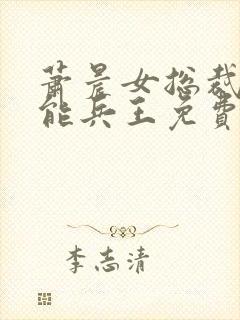 萧晨女总裁
能兵王免费
李志清